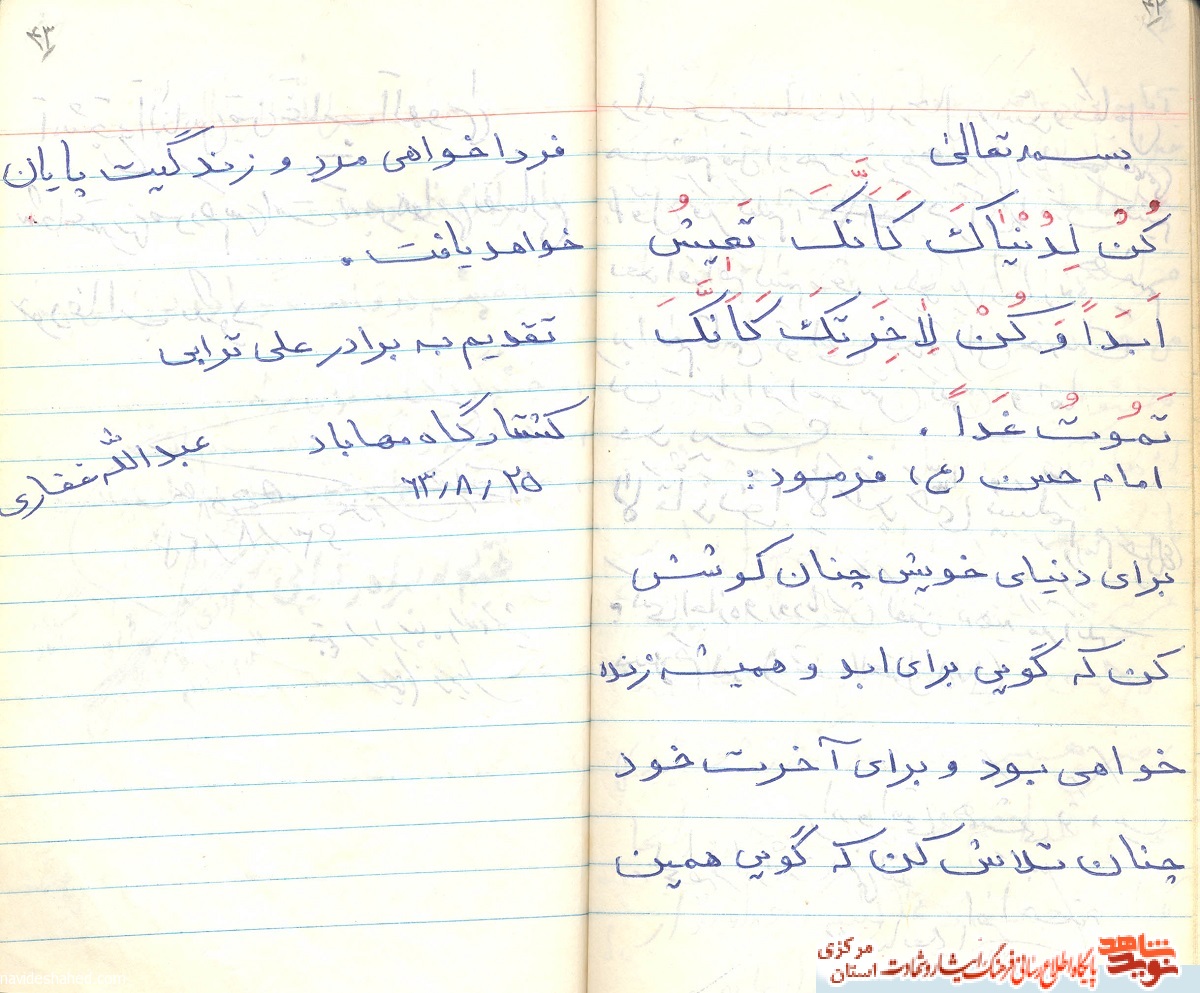 ۴۲
بسمه تعالی
كُنْ لِدُنْیاكَ كَاَنَّكَ تَعیشُ
اَبَداً وَ كُنْ لِاٰخِرَتِكَ كَاَنَّكَ
تَمُوتُ غَداً .
امام حسن (ع) فرمود :
برای دنیای خویش چنان کوشش
کن که گویی برای ابد و همیشه زنده
خواهی بود و برای آخرت خود
چنان تلاش کن که گویی همین
۴۳
فردا خواهی مرد و زندگیت پایان
خواهد یافت .
تقدیم به برادر علی ترابی
کشتارگاه مهاباد عبدالله غفاری
۶۳/۸/۲۵
نوید شاهد
پایگاه اطلاع رسانی فرهنگ ایثار و شهادت
استان مرکزی
navideshahed.com